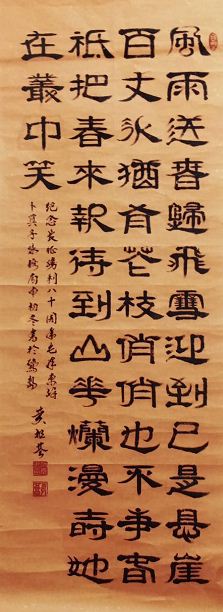 風雨送春歸飛雪迎到已是悬崖
百丈冰猶有花枝俏俏也不爭春
祗把春來報待到山華爛漫時她
在叢中笑
紀念長征勝利八十周年毛澤東詞
卜算子詠梅丙申初冬書於鷺島